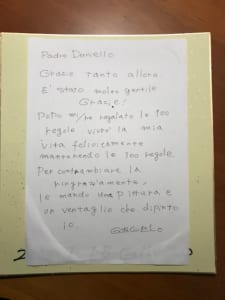 Padre Danello
Grazie tanto allora.
E' stato molto gentile
Grazie!
Dopo mi ha regalato le 100
regole vivrò la mia
vita felicitemente
mantenendo le 100 regole.
Per contrambiare la
ringraziamente,
le mando una pittura e
un ventaglio che dipinto
io.